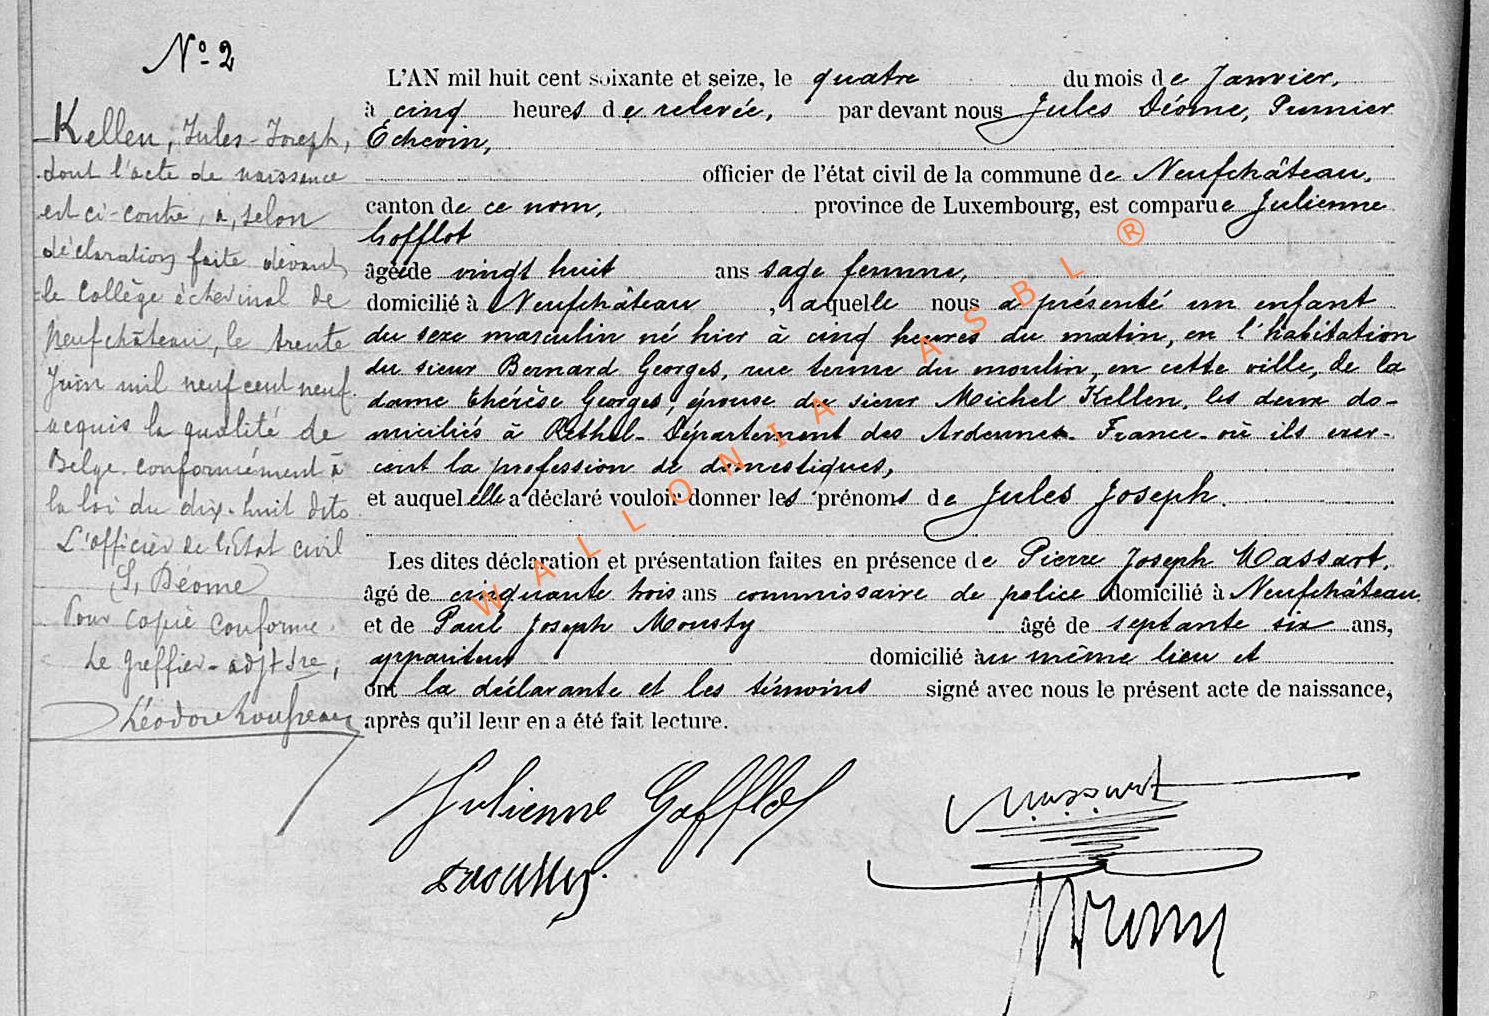 Nº 2
Kellen, Jules-Joseph,
dont l'acte de naissance
est ci-contre, a, selon
déclaration faite devant
le Collège échevinal de
Neufchâteau, le trente
Juin mil neuf cent neuf
acquis la qualité de
Belge conformément à
la loi du dix-huit dito
L'officier de l'Etat civil
(S) Déome
Pour copie conforme
Le greffier-adjt
L'AN mil huit cent soixante et seize, le quatre du mois de Janvier,
à cinq heures de relevée, par devant nous Jules Déome, Premier
Echevin,
officier de l'état civil de la commune de Neufchâteau,
canton de ce nom, province de Luxembourg, est comparue Julienne
Gofflot
âgée de vingt huit ans sage femme,
domicilié à Neufchâteau, laquelle nous a présenté un enfant
du sexe masculin né hier à cinq heures du matin, en l'habitation
du sieur Bernard Georges, rue terme du moulin, en cette ville, de la
dame thérèse Georges, épouse du sieur Michel Kellen, les deux do-
miciliés à Rethel - Département des Ardennes - France - où ils exer-
cent la profession de domestiques,
et auquel elle a déclaré vouloir donner les prénoms de Jules Joseph.
Les dites déclaration et présentation faites en présence de Pierre Joseph Massart,
âgé de cinquante trois ans commissaire de police domicilié à Neufchâteau
et de Paul Joseph Mousty âgé de septante six ans,
appariteur domicilié au même lieu et
ont la déclarante et les témoins signé avec nous le présent acte de naissance,
après qu'il leur en a été fait lecture.
WALLONIA ASBL ®
Julienne Gofflot
Massart